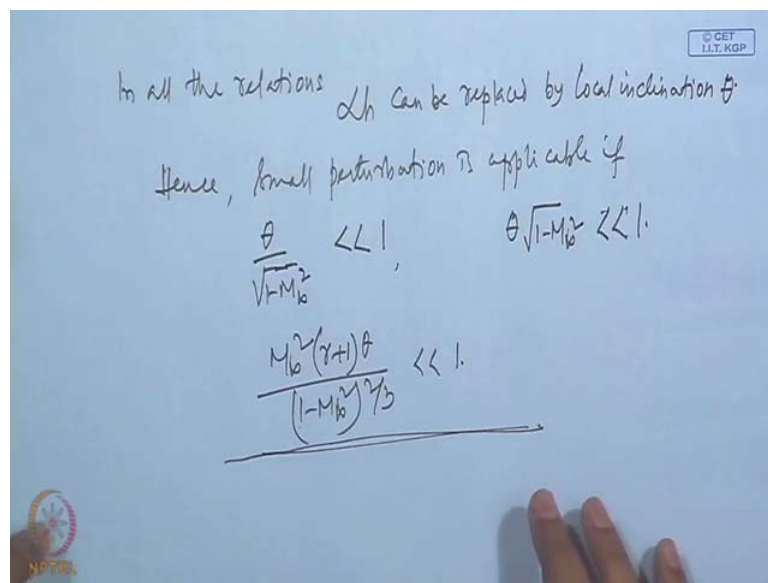 © CET
I.I.T. KGP
In all the relations αh can be replaced by local inclination θ.
Hence, small perturbation is applicable if
θ/√(1-M∞²) << 1, θ√(1-M∞²) << 1.
M∞²(γ+1)θ/(1-M∞²)^(2/3) << 1.
NPTEL